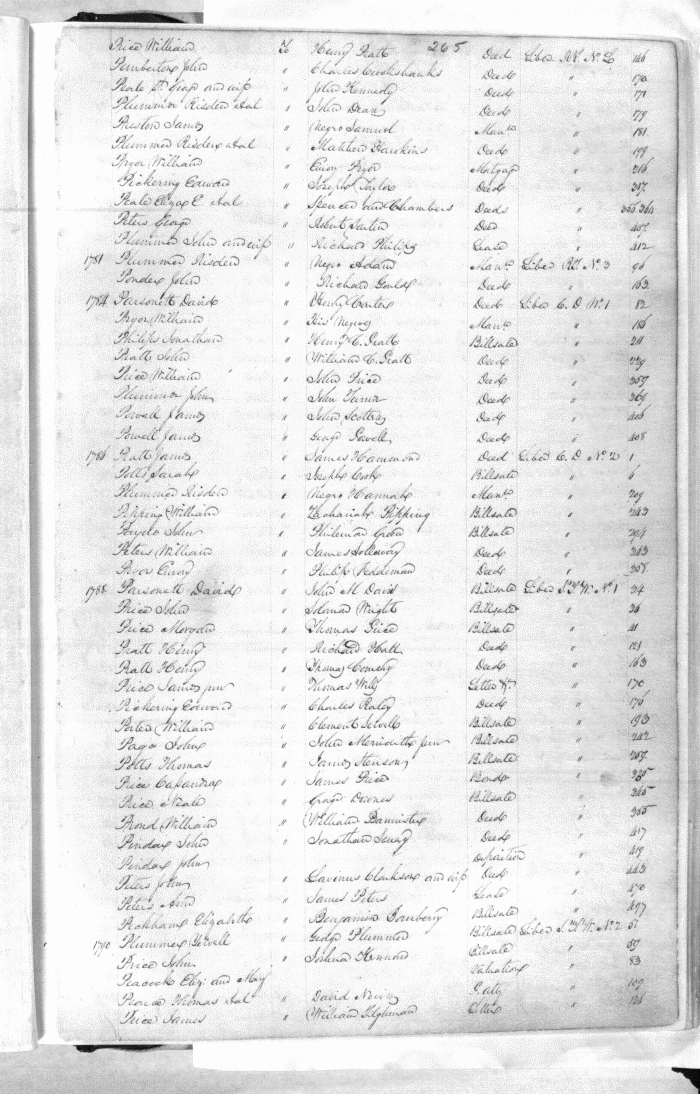 265
Price William To Henry Pratt Deed Liber RT. No. L 146
Pemberton John " Charles Crookshanks Deed " 170
Peale St. Geo and wife " John Kennedy Deed " 171
Plummer Risden & al " John Dean Deed " 179
Preston James " Negro Samuel Manu " 181
Plummer Risden & al " Matthew Hawkins Deed " 199
Pryor William " Emory Pryor Mortgage 216
Pickering Edward " Joseph Taylor Deed " 317
Peale Eliza C. & al " Spencer and Chambers Deeds "
Peters George " Robert Sartin Deed " 407
Plummer John and wife " Richard Philips Lease " 412
1781 Plummer Risden " Negro Adam Manu. Liber RT. No. 3 96
Ponder John " Richard Gould Deed " 163
1784 Parsonett David " Henry Coster Deed Liber C. D. No. 1 82
Pryor William " His Negroes Manu " 186
Philips Jonathan " Henry C. Pratt Billsale " 211
Pratt John " William C. Pratt Deed " 229
Price William " John Price Deed " 357
Plummer John " John Turner Deed " 369
Powell James " John Scotten Deed " 406
Powell James " George Powell Deed " 408
1786 Pratt James " James Hammond Deed Liber C. D. No. 2 1
Potts Sarah " Joseph Cook Billsale " 6
Plummer Risden " Negro Hannah Manu. " 209
Pipping William " Zachariah Pipping Billsale " 243
John " Philemon Green Billsale " 294
Peters William " James Holloway Deed " 343
Pryor Emory " Philip Feddeman Deed " 358
1788 Parsonett David " John M. Davis Billsale Liber S.T.W. No. 1 34
Price John " Solomon Wright Billsale " 36
Price Morgan " Thomas Price Billsale " 41
Pratt Henry " Richard Hall Deed " 121
Pratt Henry " Thomas Comehy Deed " 163
Price James junr " Thomas Wily Letter &c. " 170
Pickering Edward " Charles Raley Deed " 176
Porter William " Clement Sewell Billsale " 193
Page John " John Merideth junr Billsale " 242
Potts Thomas " James Henson Billsale " 257
Price Casandra " James Price Bond " 325
Price Neale " George Downes Billsale " 365
Prond William " William Bannister Deed " 355
Pindar John " Jonathan Deed " 417
Pindar John Deposition " 419
Peters John " Lavinus Clarkson and wife Deed " 443
Peters Ann " James Peters Lease " 470
Elizabeth " Benjamin Danberry Billsale " 497
1790 Plummer Yewell " George Plummer Billsale Liber S.T.W. No. 2 51
Price John " Joshua Kennard Billsale " 59
Peacock Eliz. and Mary Valuation " 83
Pearce Thomas & al " David Nevin " 109
Price James " William Tilghman Letter " 126